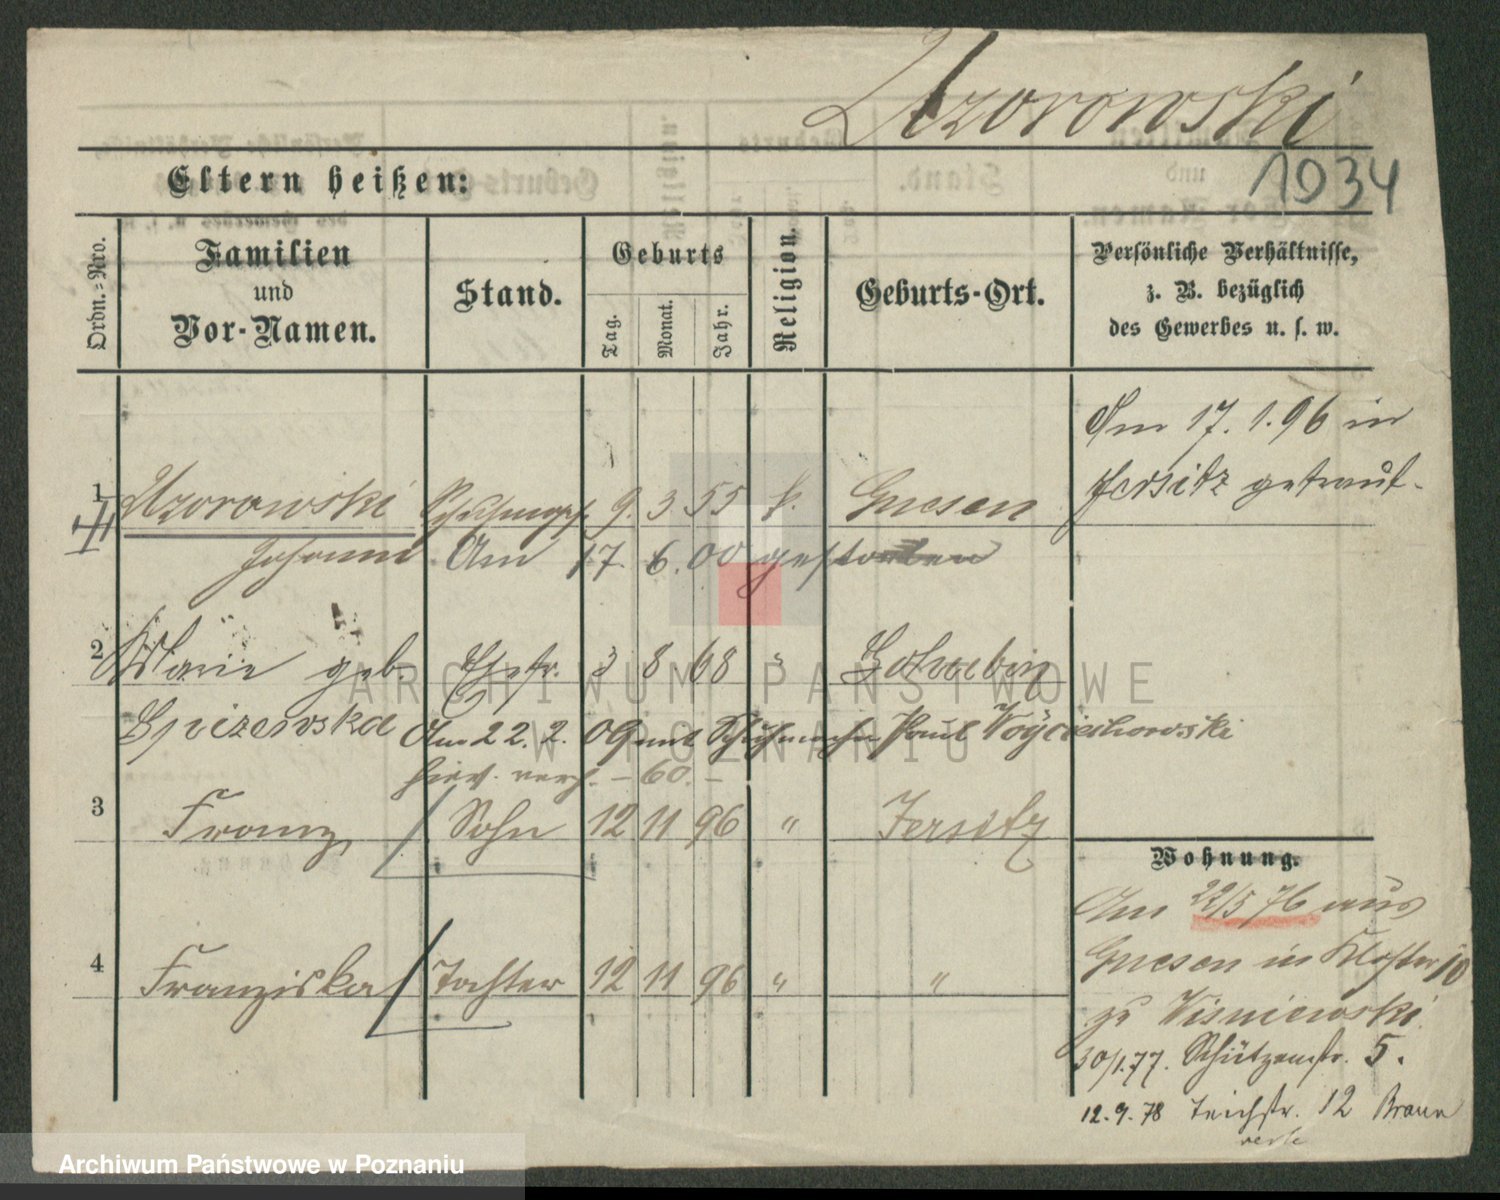 Uzorowski
1934
Eltern heißen:
Ordn.-Nro.
Familien
und
Vor-Namen.
Stand.
Geburts
Tag.
Monat.
Jahr.
Religion.
Geburts-Ort.
Persönliche Verhältnisse,
z. B. bezüglich
des Gewerbes u. s. w.
Am 17. 1. 96 in
Jersitz getraut.
1 Uzorowski 9. 3 55 k. Gnesen
Johann Am 17. 6. 00 gestorben
2 Marie geb. Ehefr. 3 8 68
Am 22. 2. 09 mit Schuhmacher Paul Woyciechowski
hier verh. – 60. –
3 Franz Sohn 12 11 96 " Jersitz
4 Franziska Tochter 12 11 96 " "
Wohnung.
Am 22/5 76 aus
Gnesen in Kloster 10
zu Wisniewski
30/1. 77. Schützenstr. 5.
12. 9. 78 Teichstr. 12
ARCHIWUM PAŃSTWOWE
W POZNANIU
Archiwum Państwowe w Poznaniu